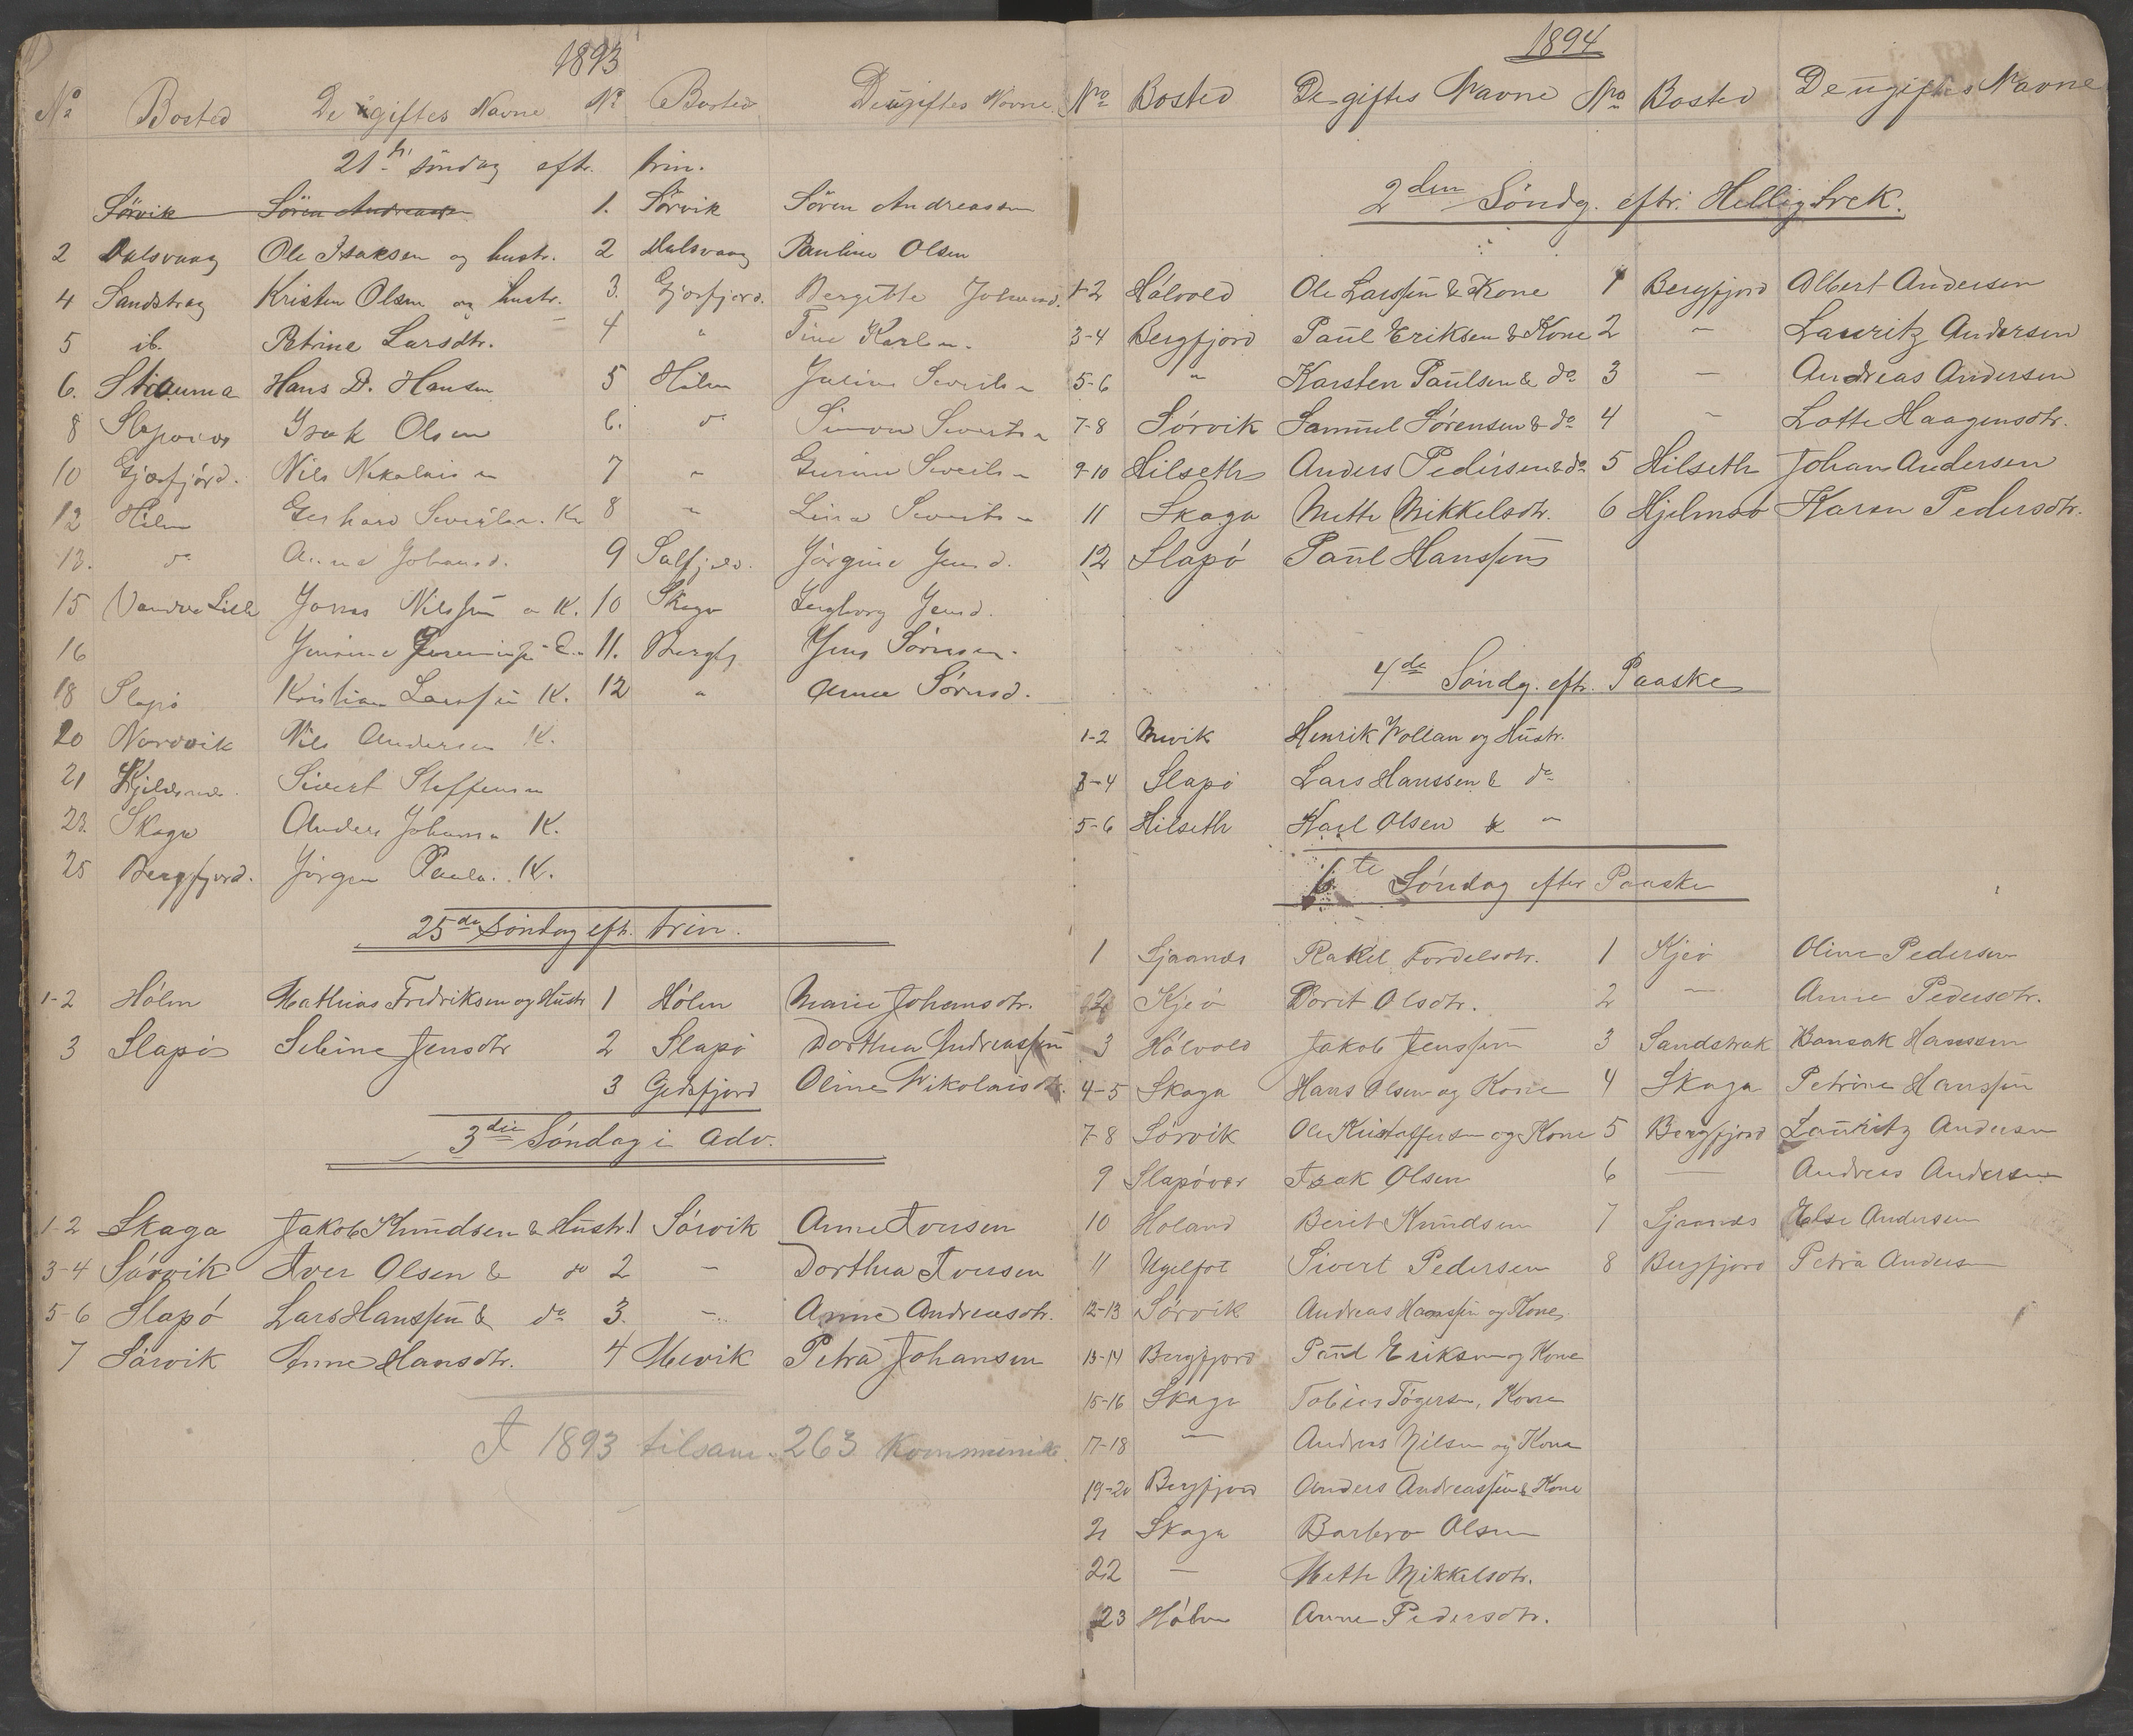 1893
No Bosted De giftes Navne No Bosted De ugiftes Navne
21de söndag eftr. trin.
Sörvik Sören Andreassen 1. Sörvik Sören Andreassen
2 Valsvaag Ole Isaksen og hustr. 2 Valsvaag Pauline Olsen
4 Sandstrag Kristen Olsen og hustr. 3. Gjæsfjord. Bergitte Johansd.
5 ib. Petrine Larsdtr. 4 " Tine
6. Strauma Hans D. Hansen 5 Holm
8 Slapøvær Isak Olsen 6. do Simon
10 Gjæsfjørd. Nils Nikolais 7 "
12 Holm Gerhard K 8 "
13. do Anna Johansd. 9
15 Jonas Nilsssen K. 10 Skaga Ingborg Jensd.
16 11. Bergfj. Jens Sörensen
18 Slapö Kristian Larssen K. 12 " Anne Sörensd.
20 Nordvik Nils Andersen K.
21 Sivert Steffensen
23. Skaga Anders Johans K.
25 Bergfjord. Jörgen Pauls. K.
25de Söndag eft. trin.
1-2 Hólm Mathias Fredriksen og Hustr 1 Hólm Marie Johansdtr.
3 Slapö Seline Jensdtr 2 Slapö Dorthea Andreassen
3 Gedsfjord Oline Nikolaisdtr.
3die Söndag i Adv.
1-2 Skaga Jakob Knudsen & Hustr. 1 Sórvik Anne Iversen
3-4 Sórvik Iver Olsen & do 2 - Dorthea Iversen
5-6 Slapó Lars Hanssen & do 3. - Anne Andreasdtr.
7 Sórvik Anne Hansdtr. 4 Mevik Petra Johansen
I 1893 tilsam. 263 Kommunik.
1894
No Bosted De giftes Navne No Bosted De ugiftes Navne
2den Söndg. eftr. Helligtrek.
1-2 Hólvold Ole Larssen & Kone 1 Bergfjord Albert Andersen
3-4 Bergfjord Paul Eriksen & Kone 2 - Lauritz Andersen
5-6 " Karsten Paulsen & do 3 - Andreas Andersen
7-8 Sórvik Samuel Sórensen & do 4 - Lotte Haagensdtr.
9-10 Hilseth Anders Pedersen & do 5 Hilseth Johan Andersen
11 Skaga Mette Mikkelsdtr. 6 Hjelmsö Karen Pedersdtr.
12 Slapó Paul Hanssen
4de Söndg. eftr. Paaske
1-2 Mevik Henrik Wollan og Hustr.
3-4 Slapö Lars Hanssen & do
5-6 Hilseth Karl Olsen & "
6te Söndag efter Paaske
1 Sjaanæs Rakel Tordelsdtr. 1 Kjeö Oline Pedersen
2 Kjeö Dorit Olsdtr. 2 - Anne Pedersdtr.
3 Hólvold Jakob Jenssen 3 Sandstrak Hanssen
4-5 Skaga Hans Olsen og Kone 4 Skaga Petrine Hanssen
7-8 Sórvik Ole Kristoffersen og Kone 5 Bergfjord Lauritz Andersen
9 Slapóvær Isak Olsen 6 — Andreas Andersen
10 Holand Berit Knudsen 7 Sjaanæs Else Andersen
11 Ugelfot Sivert Pedersen 8 Bergfjord Petra Andersen
12-13 Sórvik Andreas Hanssen og Kone
13-14 Bergfjord Paul Eriksen og Kone
15-16 Skaga Tobias Tögersen, Kone
17-18 — Andreas Nilsen og Kone
19-20 Bergfjord Anders Andreassen & Kone
21 Skaga Barbro Olsen
22 — Mette Mikkelsdtr.
23 Hólm Anne Pedersdtr.